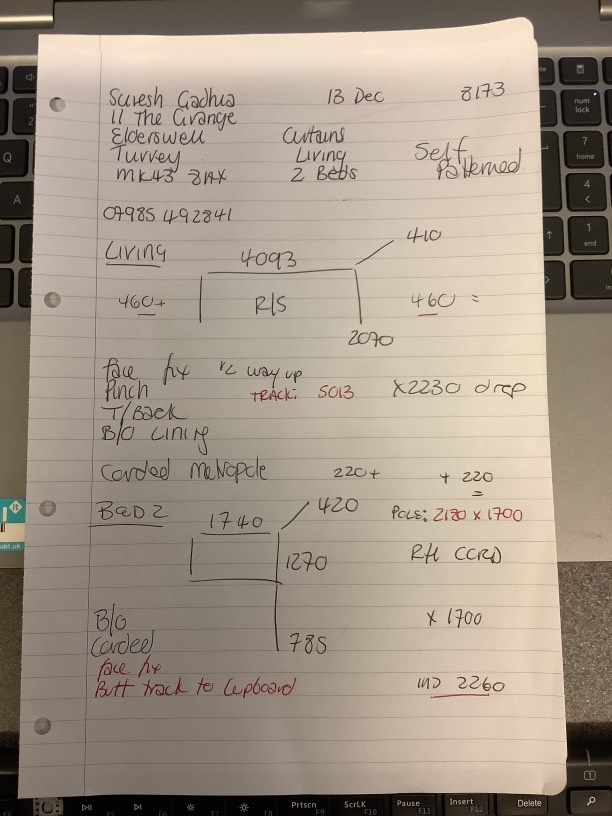 Suresh Gadhia 13 Dec 8173
11 The Grange
Elderswell Curtains
Turvey Living Self
MK43 8AX 2 Beds Patterned
07985 492841
Living 4093 410
460+ R/S 460 =
2070
face fix 1/2 way up
Pinch TRACK: 5013 X2230 drop
T/Back
B/O Lining
Corded Metropole 220+ + 220
=
BED 2 1740 420 POLE: 2180 x 1700
1270 RH CCRD
B/O x 1700
Corded 785
face fix
Butt track to Cupboard IND 2260
Q
A
num lock
7 home
4
1 end
Prtscn F10
ScrLK
Pause F11
Insert F12
Delete